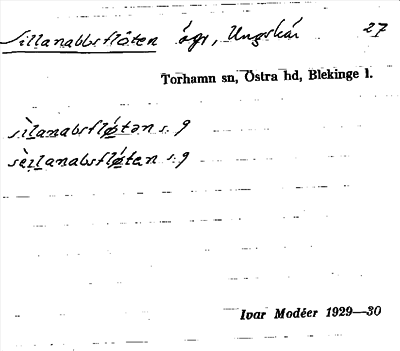 Sillanabbsflöten ögr, Ungskär 27
Torhamn sn, Östra hd, Blekinge l.
sìlanabsflǿtən s. g
sèilanabsflǿtən s. g
Ivar Modéer 1929—30